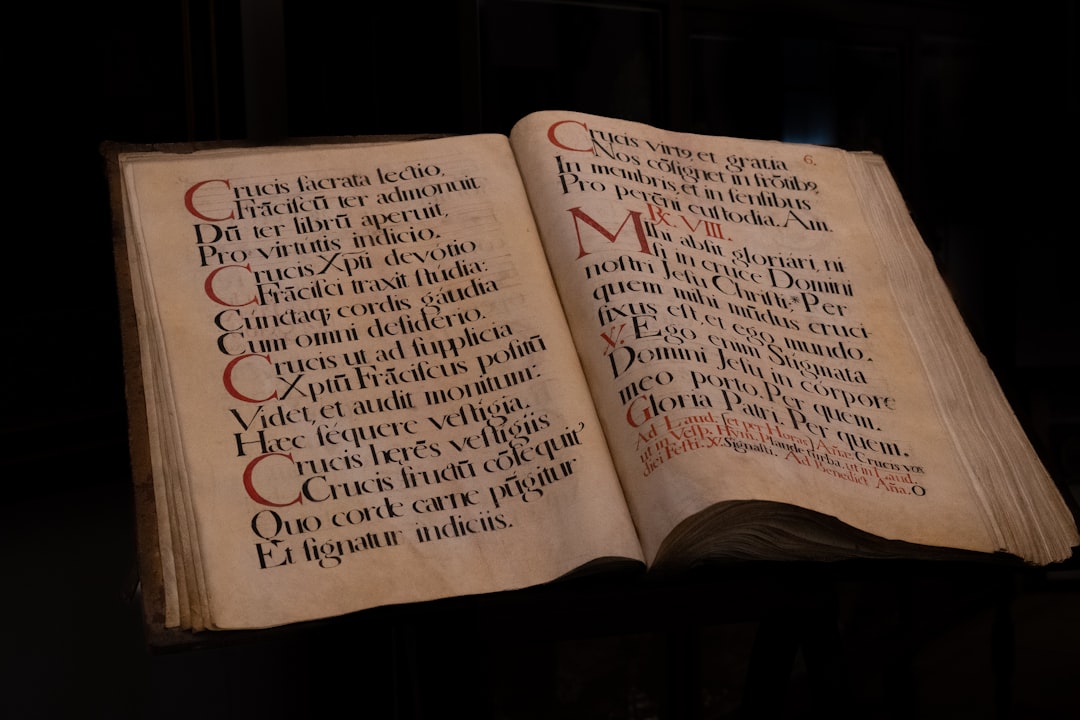 Crucis ſacrata lectio,
Frāciſcū ter admonuit
Dū ter librū aperuit,
Pro virtutis indicio.
Crucis Xpti devótio
Frāciſci traxit ſtúdia:
Cúnctaq; cordis gáudia
Cum omni deſidério.
Crucis ut ad ſupplicia
Xptū Frāciſcus poſitū
Videt, et audit monitum:
Hæc ſéquere veſtigia.
Crucis herēs veſtigiis
Crucis fructū cōſequit'
Quo corde carne pūgitur
Et ſignatur indiciis.
6.
Crucis virt9, et gratia
Nos cōſignet in frōtib9,
In membris, et in ſenſibus
Pro perēni cuſtodia. Am.
R. VIII.
Mihi abſit gloriári, ni
ſi in cruce Domini
noſtri Jeſu Chriſti:* Per
quem mihi mūdus cruci-
fixus eſt, et ego mundo.
V. Ego enim Stigmata
Domini Jeſu in córpore
meo porto. Per quem.
Gloria Patri. Per quem.
Ad Laud. ſet per Horas Añæ Crucis vox
ut in Veſp. Hym. Plaude turba, ut in Laud.
dici Feſti. V. Signaſti. Ad Benedict. Aña. O